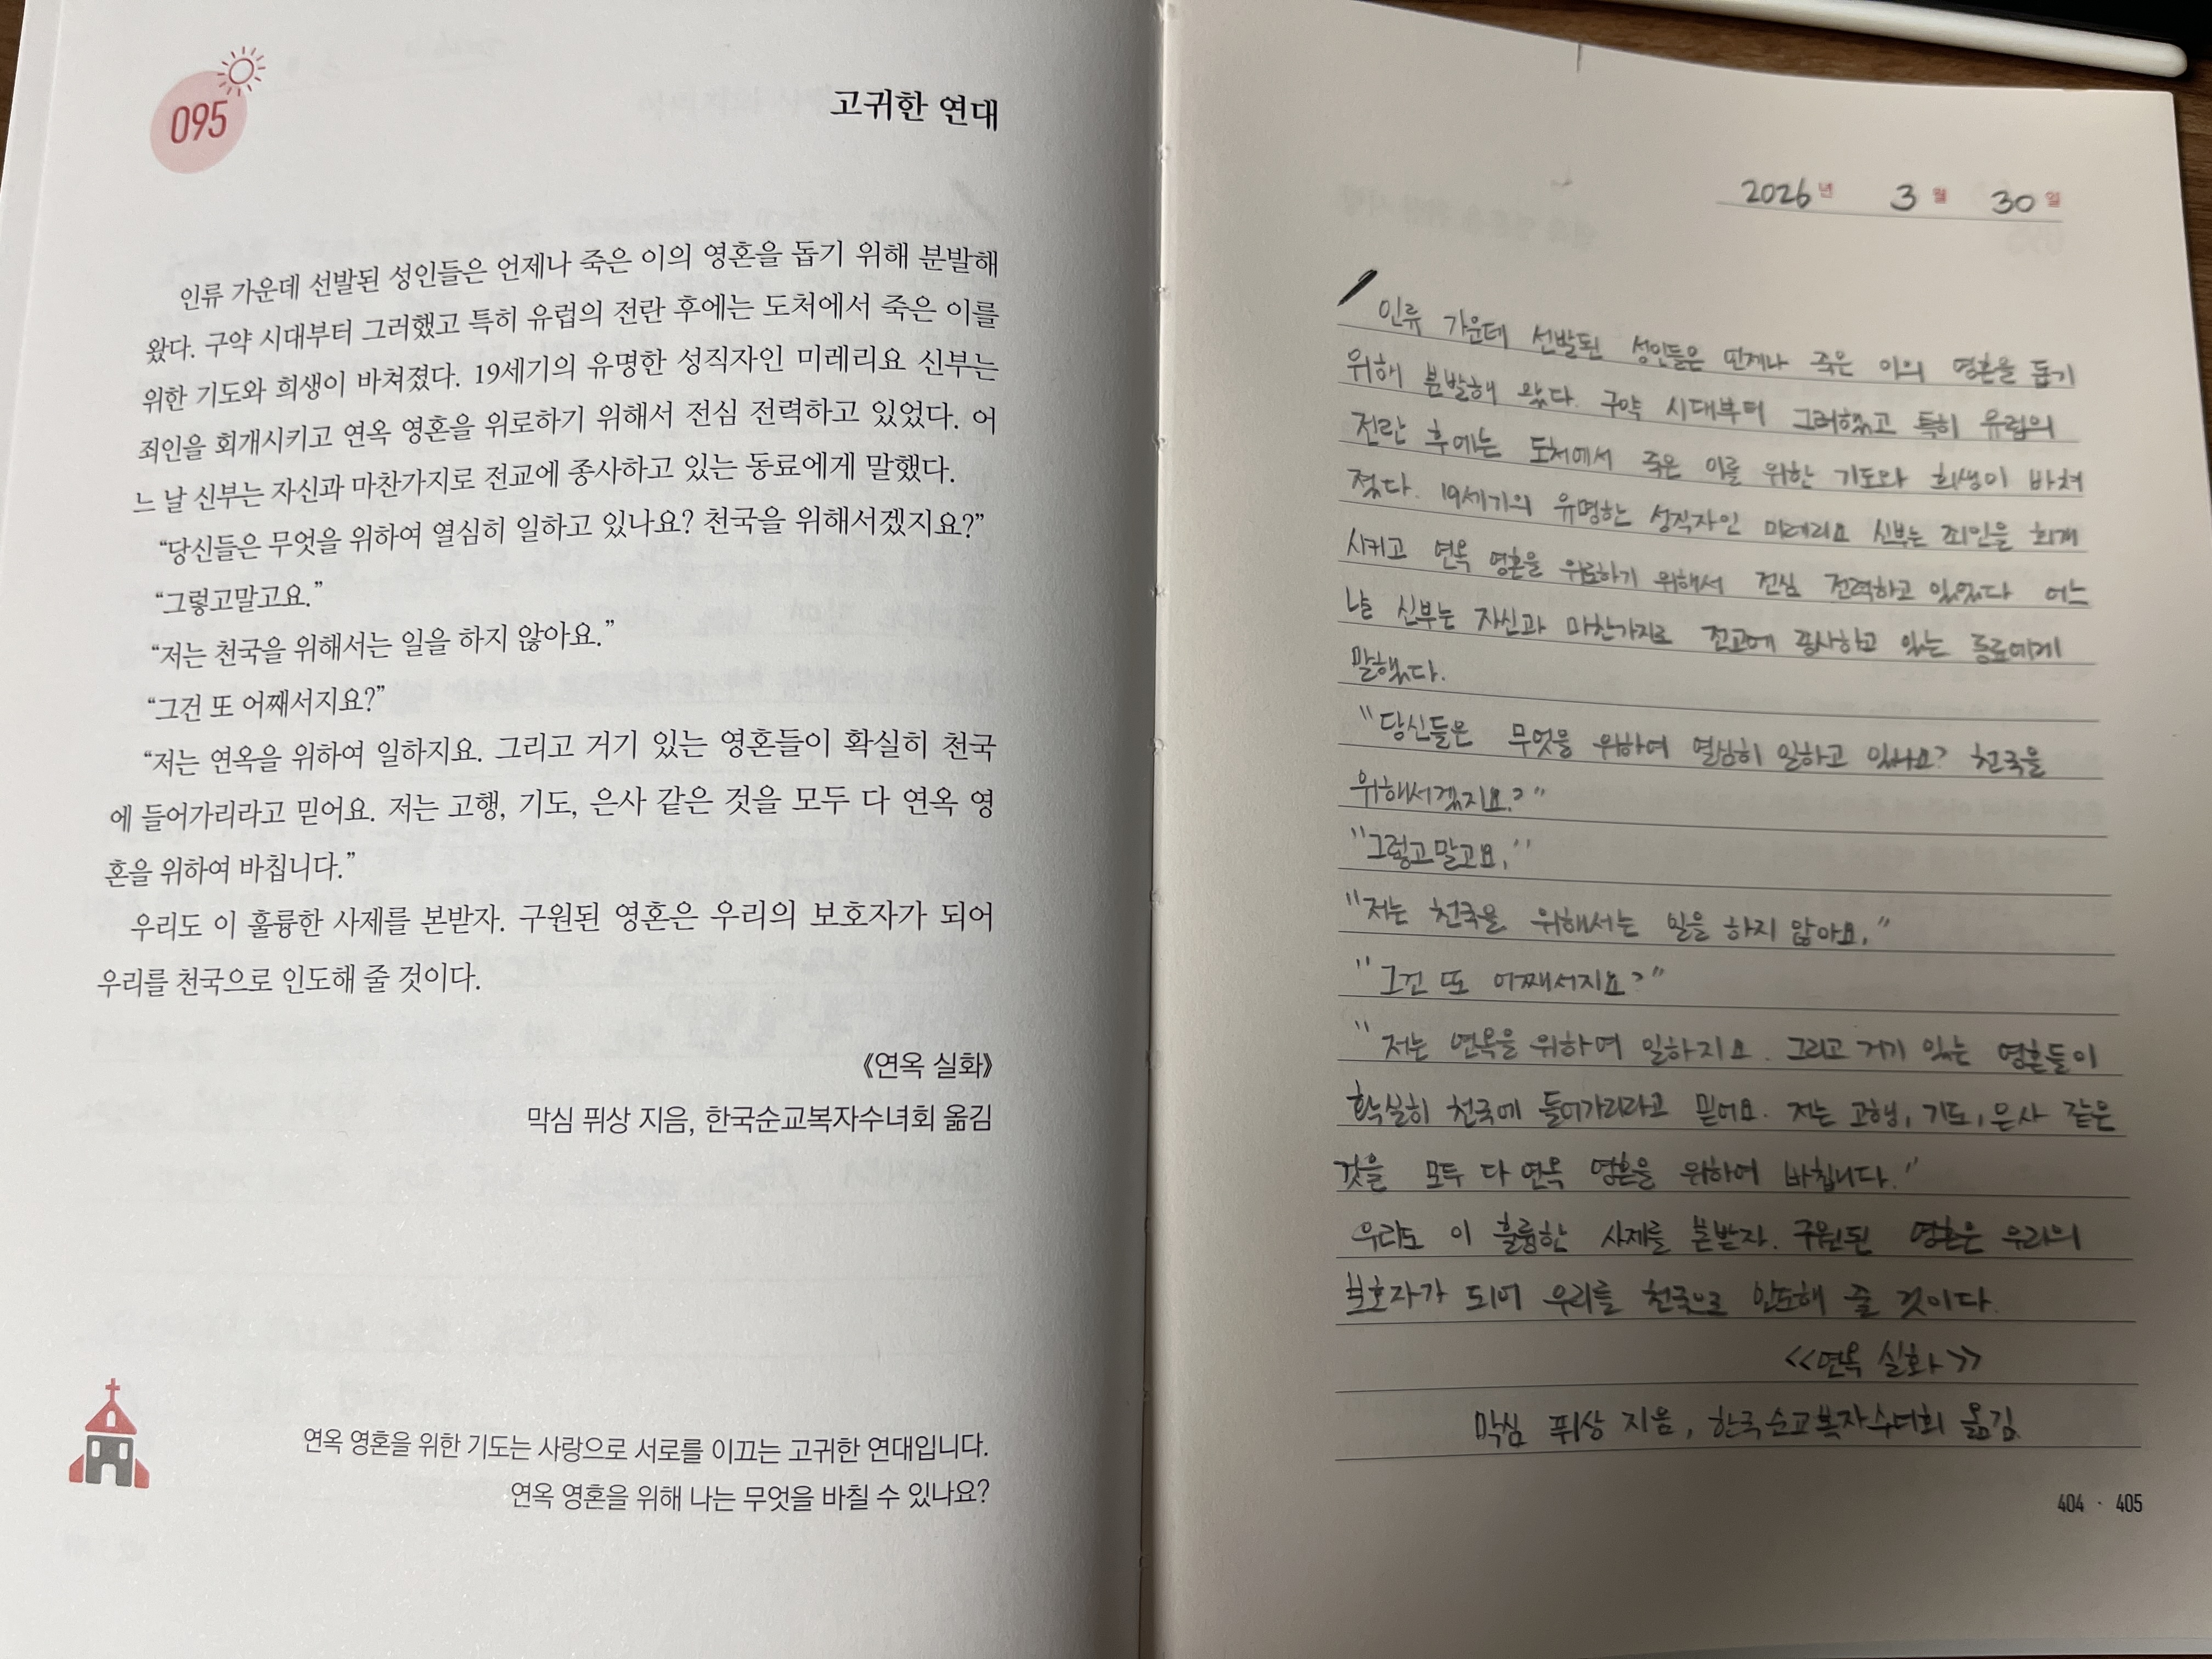 095
고귀한 연대
인류 가운데 선발된 성인들은 언제나 죽은 이의 영혼을 돕기 위해 분발해
왔다. 구약 시대부터 그러했고 특히 유럽의 전란 후에는 도처에서 죽은 이를
위한 기도와 희생이 바쳐졌다. 19세기의 유명한 성직자인 미레리요 신부는
죄인을 회개시키고 연옥 영혼을 위로하기 위해서 전심 전력하고 있었다. 어
느 날 신부는 자신과 마찬가지로 전교에 종사하고 있는 동료에게 말했다.
“당신들은 무엇을 위하여 열심히 일하고 있나요? 천국을 위해서겠지요?”
“그렇고말고요.”
“저는 천국을 위해서는 일을 하지 않아요.”
“그건 또 어째서지요?”
“저는 연옥을 위하여 일하지요. 그리고 거기 있는 영혼들이 확실히 천국
에 들어가리라고 믿어요. 저는 고행, 기도, 은사 같은 것을 모두 다 연옥 영
혼을 위하여 바칩니다.”
우리도 이 훌륭한 사제를 본받자. 구원된 영혼은 우리의 보호자가 되어
우리를 천국으로 인도해 줄 것이다.
《연옥 실화》
막심 퓌상 지음, 한국순교복자수녀회 옮김
연옥 영혼을 위한 기도는 사랑으로 서로를 이끄는 고귀한 연대입니다.
연옥 영혼을 위해 나는 무엇을 바칠 수 있나요?
2026년 3월 30일
인류 가운데 선발된 성인들은 언제나 죽은 이의 영혼을 돕기
위해 분발해 왔다. 구약 시대부터 그러했고 특히 유럽의
전란 후에는 도처에서 죽은 이를 위한 기도와 희생이 바쳐
졌다. 19세기의 유명한 성직자인 미레리요 신부는 죄인을 회개
시키고 연옥 영혼을 위로하기 위해서 전심 전력하고 있었다 어느
날 신부는 자신과 마찬가지로 전교에 종사하고 있는 동료에게
말했다.
"당신들은 무엇을 위하여 열심히 일하고 있나요? 천국을
위해서겠지요?"
"그렇고말고요."
"저는 천국을 위해서는 일을 하지 않아요."
"그건 또 어째서지요?"
"저는 연옥을 위하여 일하지요. 그리고 거기 있는 영혼들이
확실히 천국에 들어가리라고 믿어요. 저는 고행, 기도, 은사 같은
것을 모두 다 연옥 영혼을 위하여 바칩니다."
우리도 이 훌륭한 사제를 본받자. 구원된 영혼은 우리의
보호자가 되어 우리를 천국으로 인도해 줄 것이다.
<<연옥 실화>>
막심 퓌상 지음, 한국순교복자수녀회 옮김
404 · 405